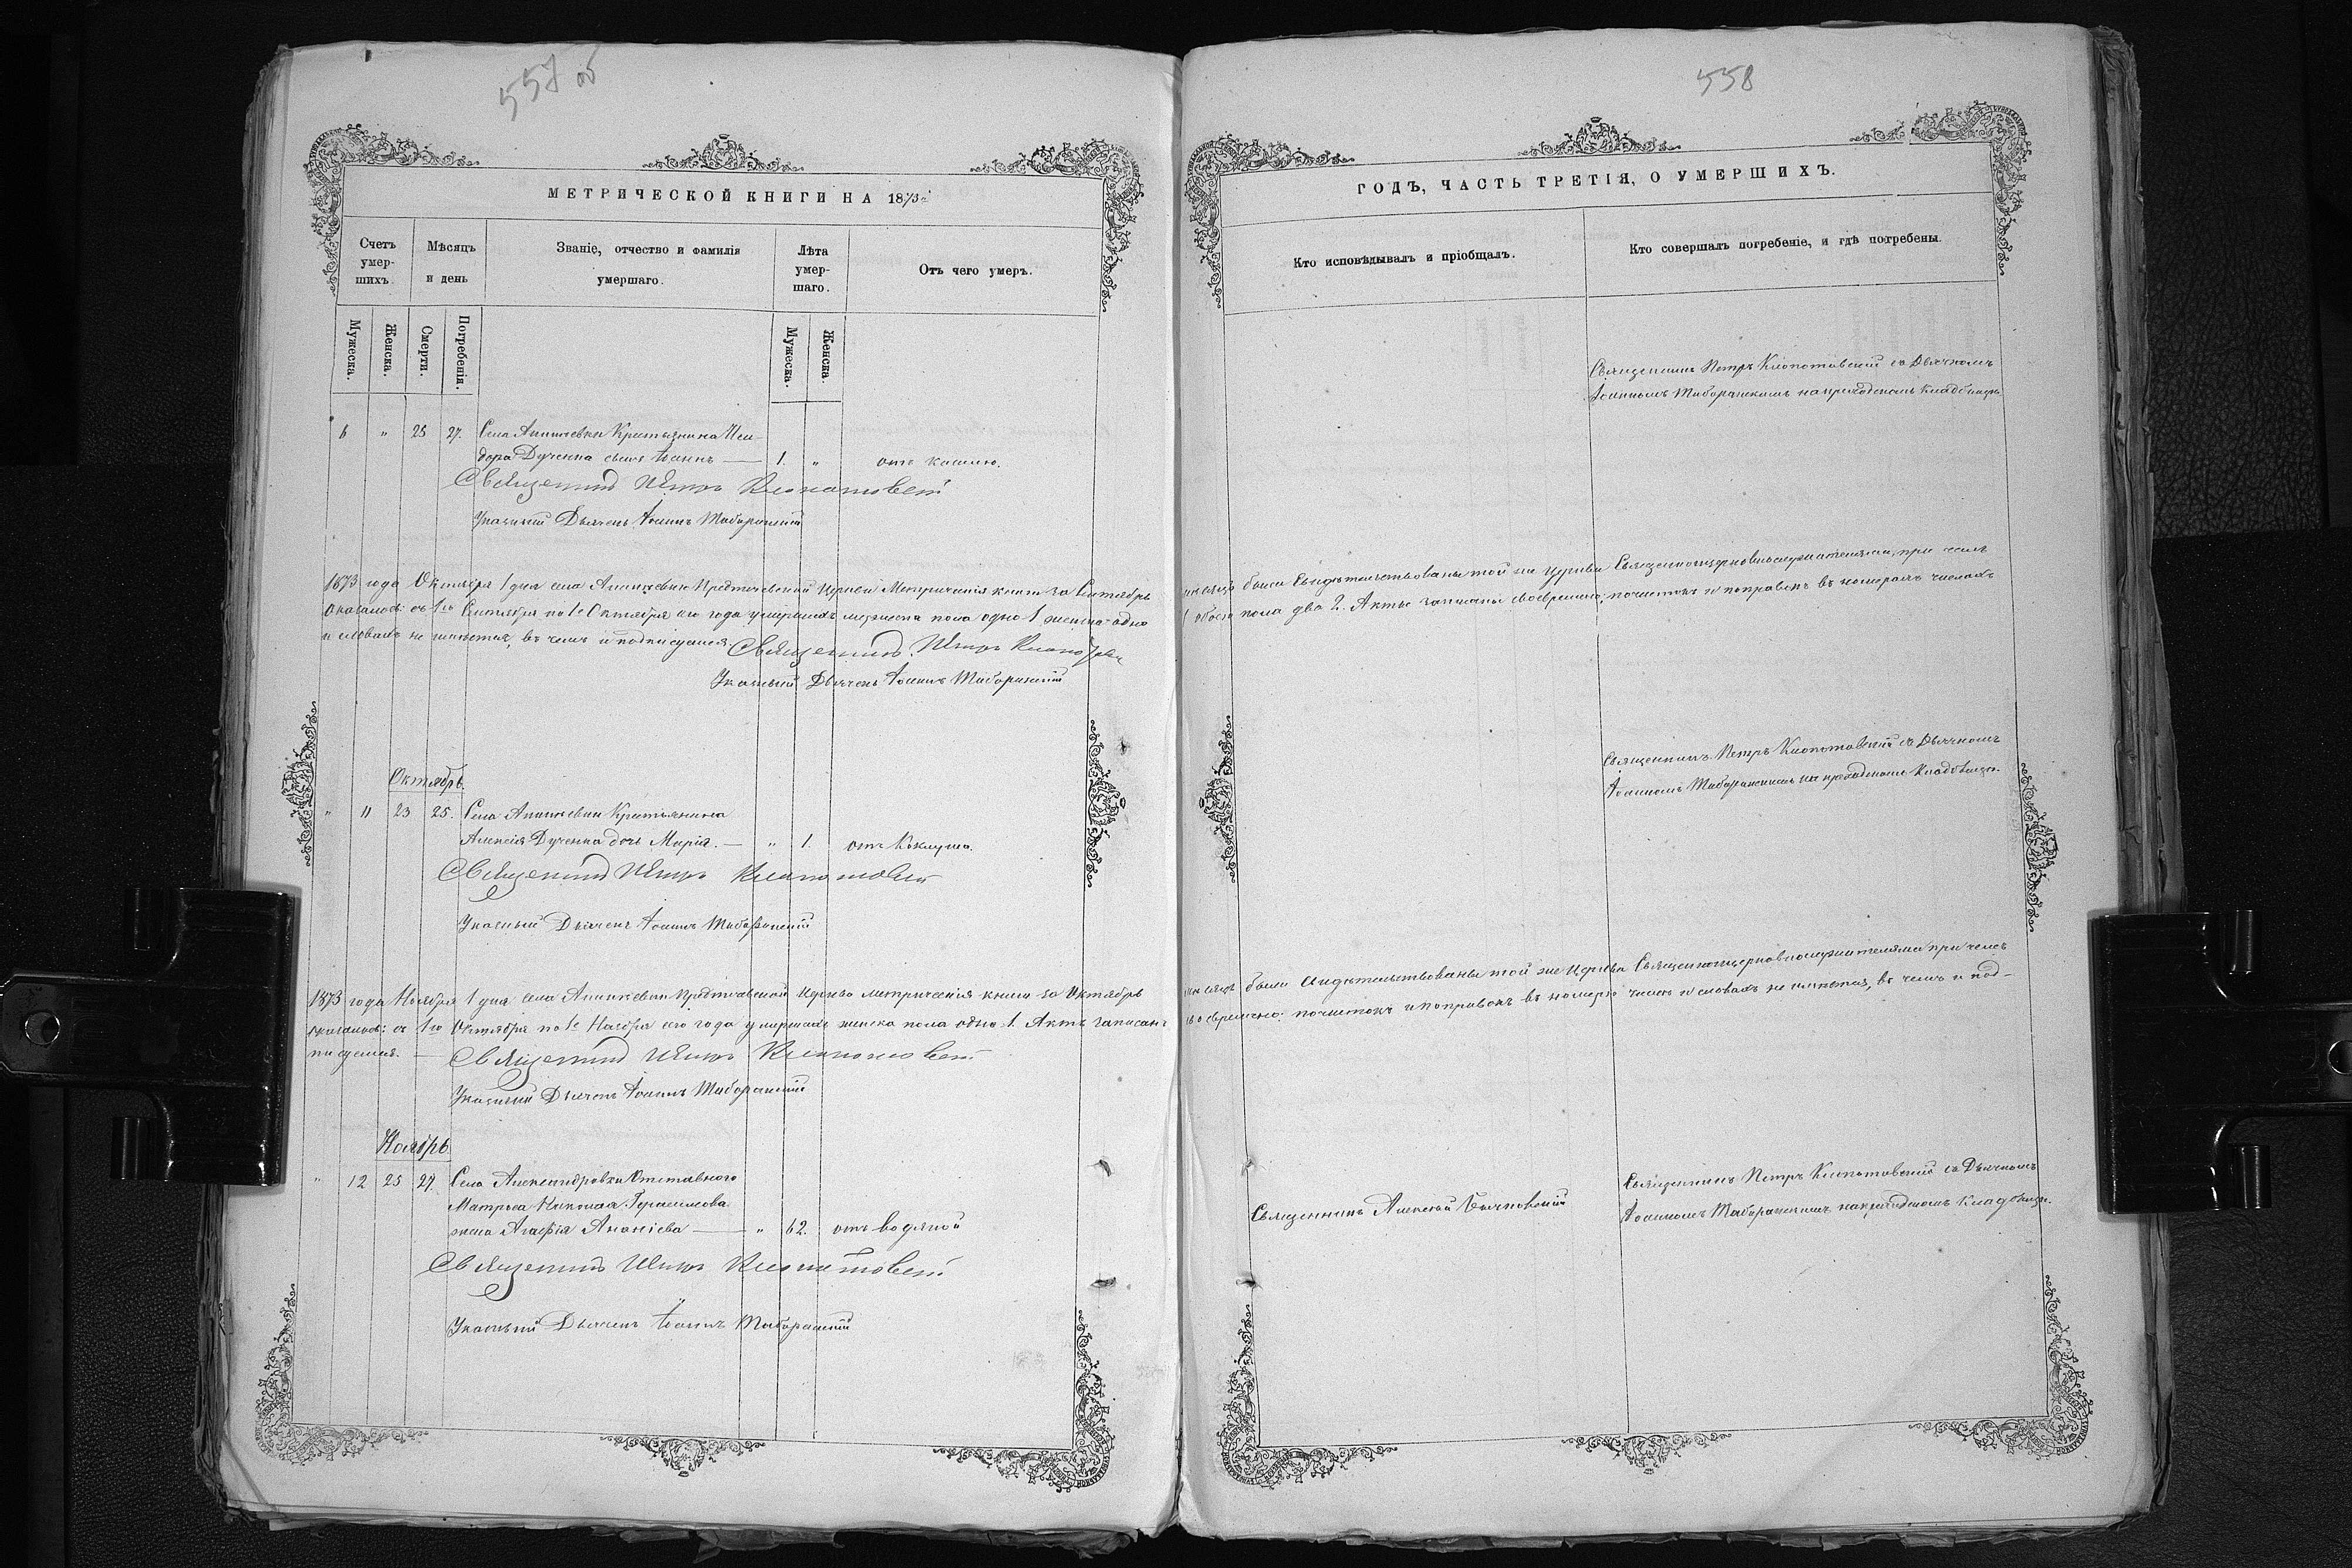 557 об
МЕТРИЧЕСКОЙ КНИГИ НА 1873й
Счетъ умер-шихъ.
Мѣсяцъ и день
Званіе, отчество и фамилія умершаго.
Лѣта умер-шаго.
Отъ чего умеръ.
Мужеска.
Женска.
Смерти.
Погребенія.
Мужеска.
Женска.
6 " 25 27. Села Крестьянина Иси-
дора Дученка сынъ Іоаннъ — 1. " отъ кашлю.
Священникъ Петръ Клопотовскій
Указный Дьячекъ Іоаннъ
1873 года Октября 1 дня села Церкви Метрическія книги за Сентябрь
оказалось: съ 1го Сентября по 1е Октября сего года умершихъ мужеска пола одно 1 женска одно
и словахъ не имѣется, въ чемъ и подписуемся Священникъ Петръ
Указный Дьячекъ Іоаннъ
Октябрь.
" 11 23 25. Села Крестьянина
Алексія Дученка дочь Марія. — " 1. отъ Коклуша.
Священникъ Петръ Клопотовскій
Указный Дьячекъ Іоаннъ
1873 года Ноября 1 дня села Церкви метрическія книги за Октябрь
оказалось: съ 1го Октября по 1е Ноября сего года умершихъ женска пола одно 1. Актъ записанъ
писуемся. — Священникъ Петръ Клопотовскій
Указный Дьячекъ Іоаннъ
Ноябрь.
" 12 25 27. Села Александровки Отставного
Матроса Николая Герасимова
жена Агафія Ананіева — " 62. отъ водяной
Священникъ Петръ Клопотовскій
Указный Дьячекъ Іоаннъ
558
ГОДЪ, ЧАСТЬ ТРЕТІЯ, О УМЕРШИХЪ.
Кто исповѣдывалъ и пріобщалъ.
Кто совершалъ погребеніе, и гдѣ погребены.
Священникъ Петръ Клопотовскій съ Дьячкомъ
Іоанномъ на приходскомъ кладбищѣ.
мѣсяцъ были свидѣтельствованы той же Церкви Священноцерковнослужителями, при чемъ
обоего пола два 2. Акты записаны своевремено; почистокъ и поправокъ въ номерахъ числахъ
Священникъ Петръ Клопотовскій съ Дьячкомъ
Іоанномъ на приходскомъ Кладбищѣ.
мѣсяцъ были свидѣтельствованы той же Церкви Священноцерковнослужителями при чемъ
своевремено: почистокъ и поправокъ въ номерѣ числѣ и словахъ не имѣется, въ чемъ и под-
Священникъ Алексѣй
Священникъ Петръ Клопотовскій съ Дьячкомъ
Іоанномъ на приходскомъ Кладбищѣ.